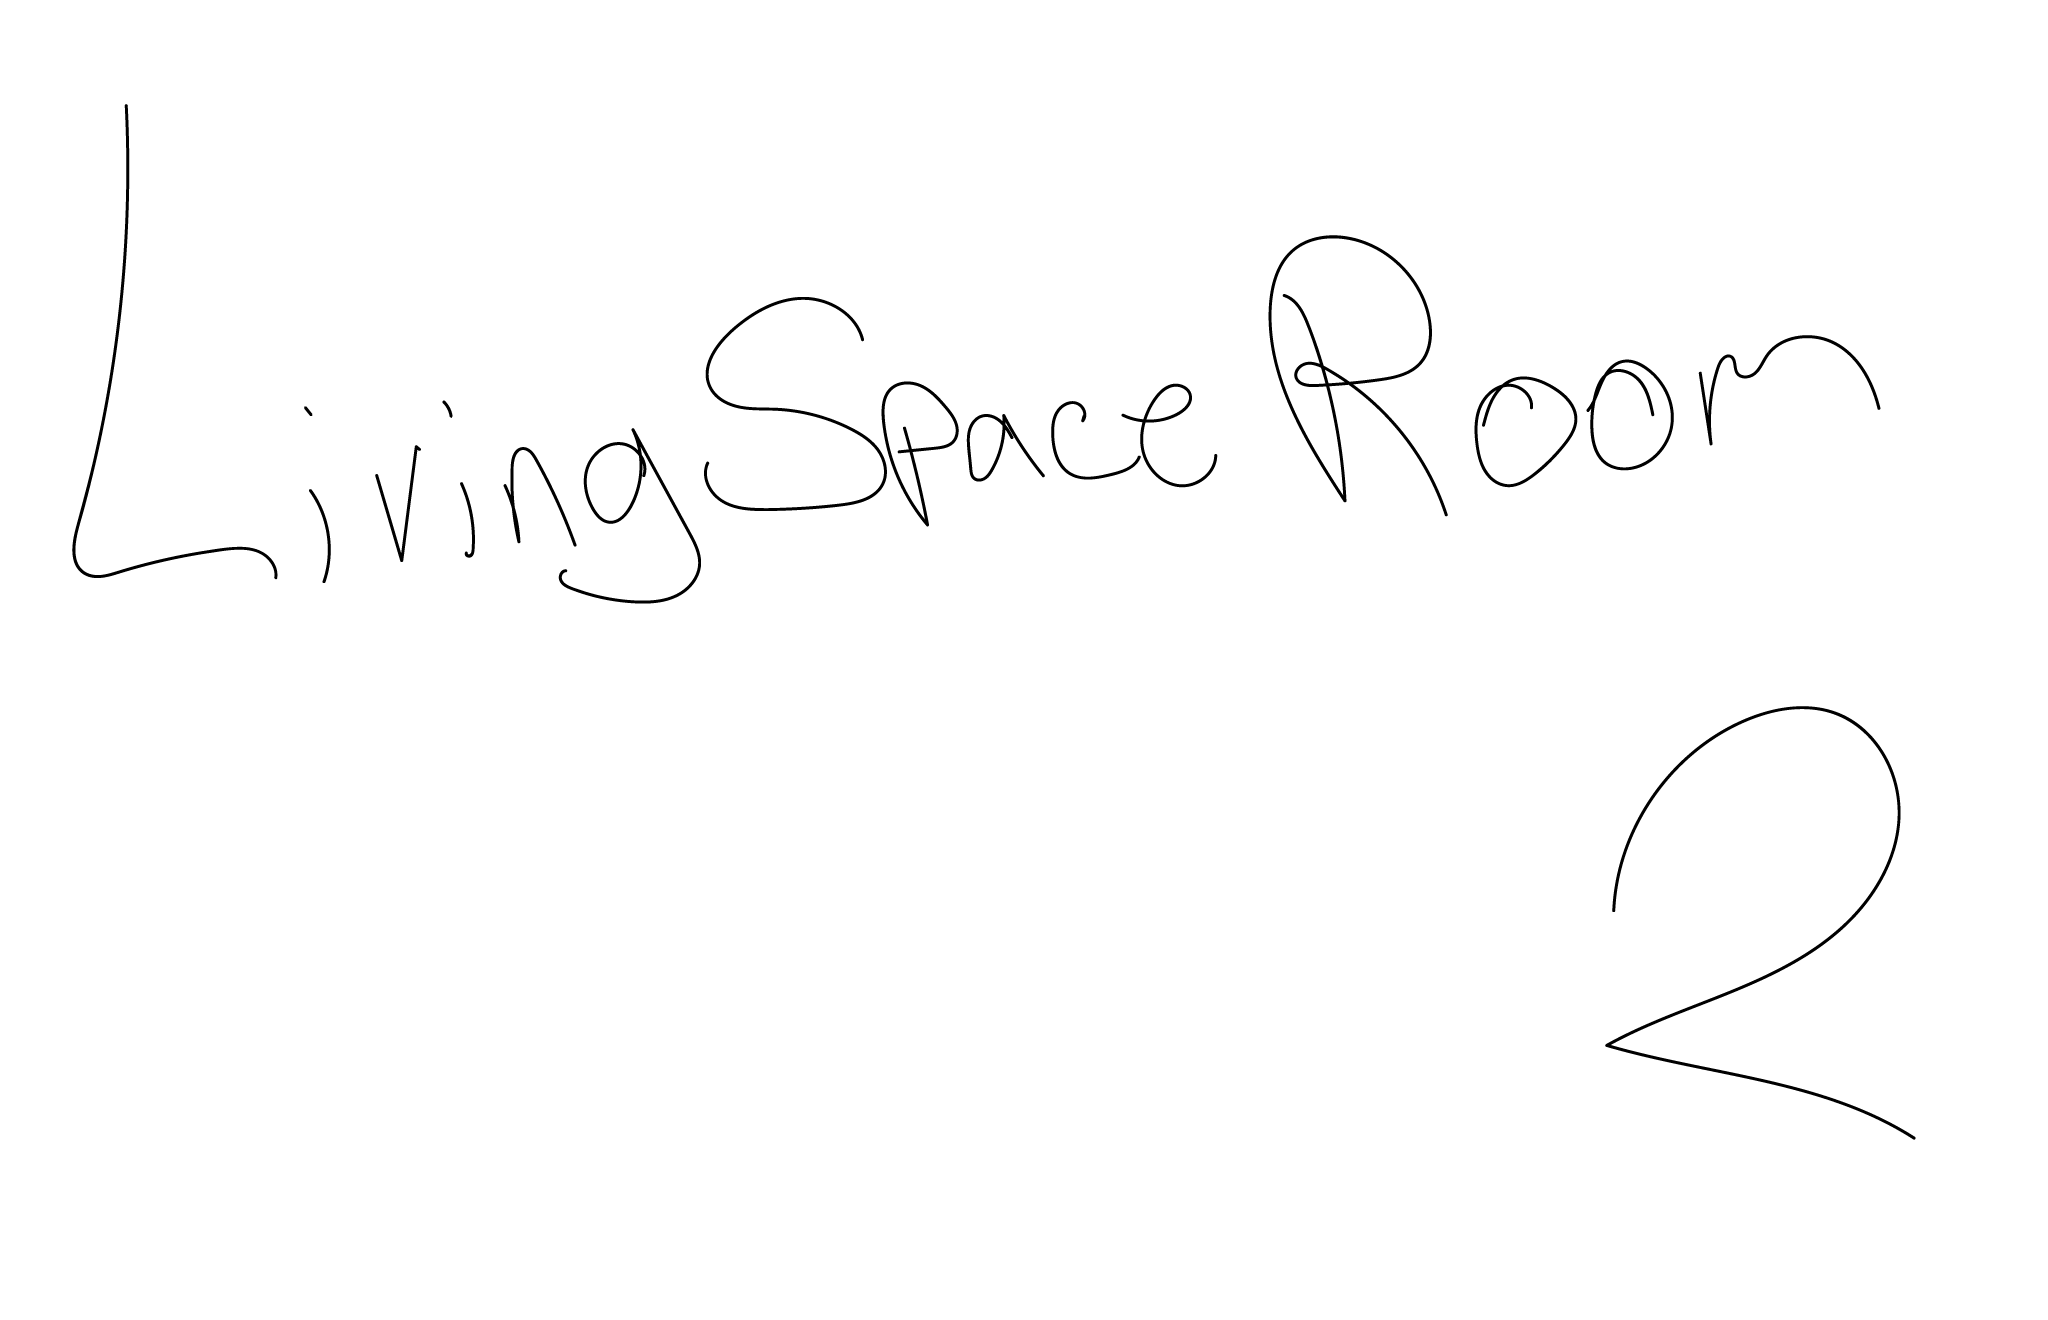 Living Space Room
2